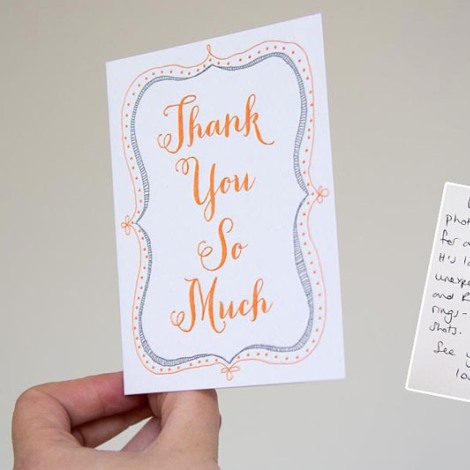 Thank
You
So
Much
phot
for a
It's lo
unexpe
and R
rings-
shots.
See y
lo